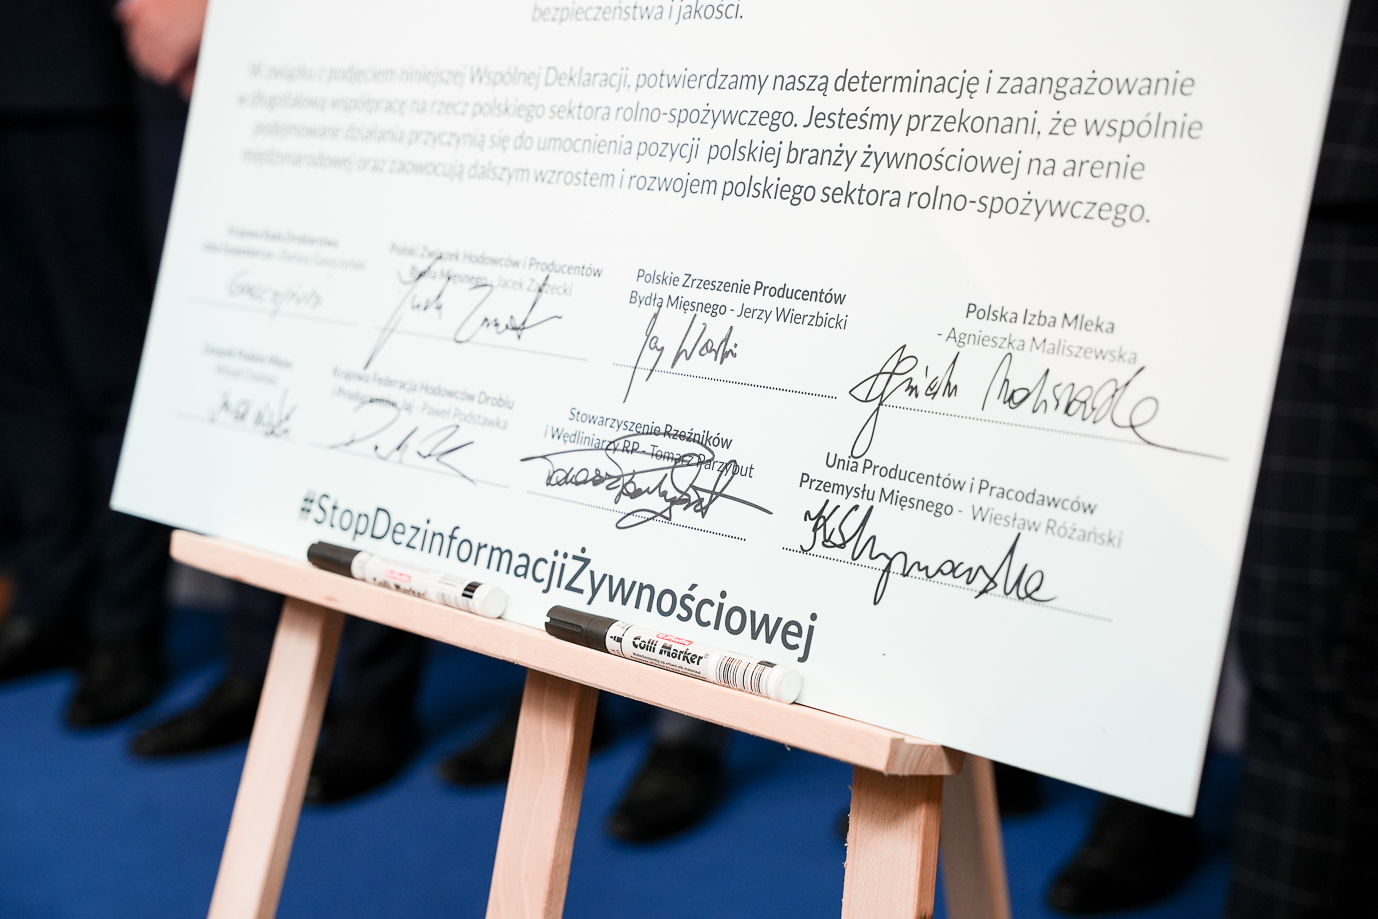 bezpieczeństwa i jakości.
W związku z podjęciem niniejszej Wspólnej Deklaracji, potwierdzamy naszą determinację i zaangażowanie
w długofalową współpracę na rzecz polskiego sektora rolno-spożywczego. Jesteśmy przekonani, że wspólnie
podejmowane działania przyczynią się do umocnienia pozycji polskiej branży żywnościowej na arenie
międzynarodowej oraz zaowocują dalszym wzrostem i rozwojem polskiego sektora rolno-spożywczego.
Krajowa Rada Drobiarstwa
Izba Gospodarcza - Dariusz Goszczyński
Polski Związek Hodowców i Producentów
Bydła Mięsnego - Jacek Zarzecki
Polskie Zrzeszenie Producentów
Bydła Mięsnego - Jerzy Wierzbicki
Polska Izba Mleka
- Agnieszka Maliszewska
Związek Polskie Mięso
Krajowa Federacja Hodowców Drobiu
i Producentów Jaj - Paweł Podstawka
Stowarzyszenie Rzeźników
i Wędliniarzy RP - Tomasz Parzyput
Unia Producentów i Pracodawców
Przemysłu Mięsnego - Wiesław Różański
#StopDezinformacjiŻywnościowej
Colli Marker
Colli Marker